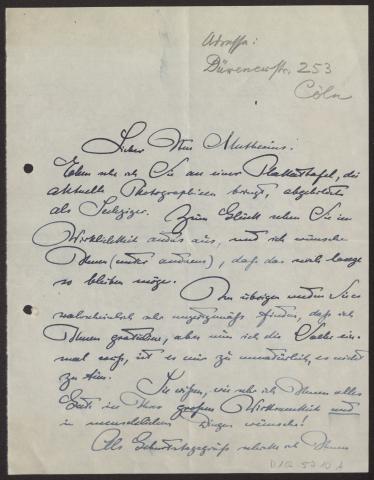 Adresse:
Dürenerstr. 253
Cöln
Lieber Herr Muthesius!
Eben sehe ich Sie an einer Plakattafel, die
aktuelle Photographieen bringt, abgebildet
als Sechziger. Zum Glück sehen Sie in
Wirklichkeit anders aus, und ich wünsche
Ihnen (unter anderem), daß das noch lange
so bleiben möge. Im übrigen werden Sie es
wahrscheinlich sehr finden, daß ich
Ihnen gratuliere, aber nun ich die Sache ein-
mal weiß, ist es mir zu unnatürlich, es nicht
zu tun.
Sie wissen, wie sehr ich Ihnen alles
Gute in Ihrer großen Wirksamkeit und
in menschlichen Dingen wünsche!
Als Geburtstagsgruß schicke ich Ihnen